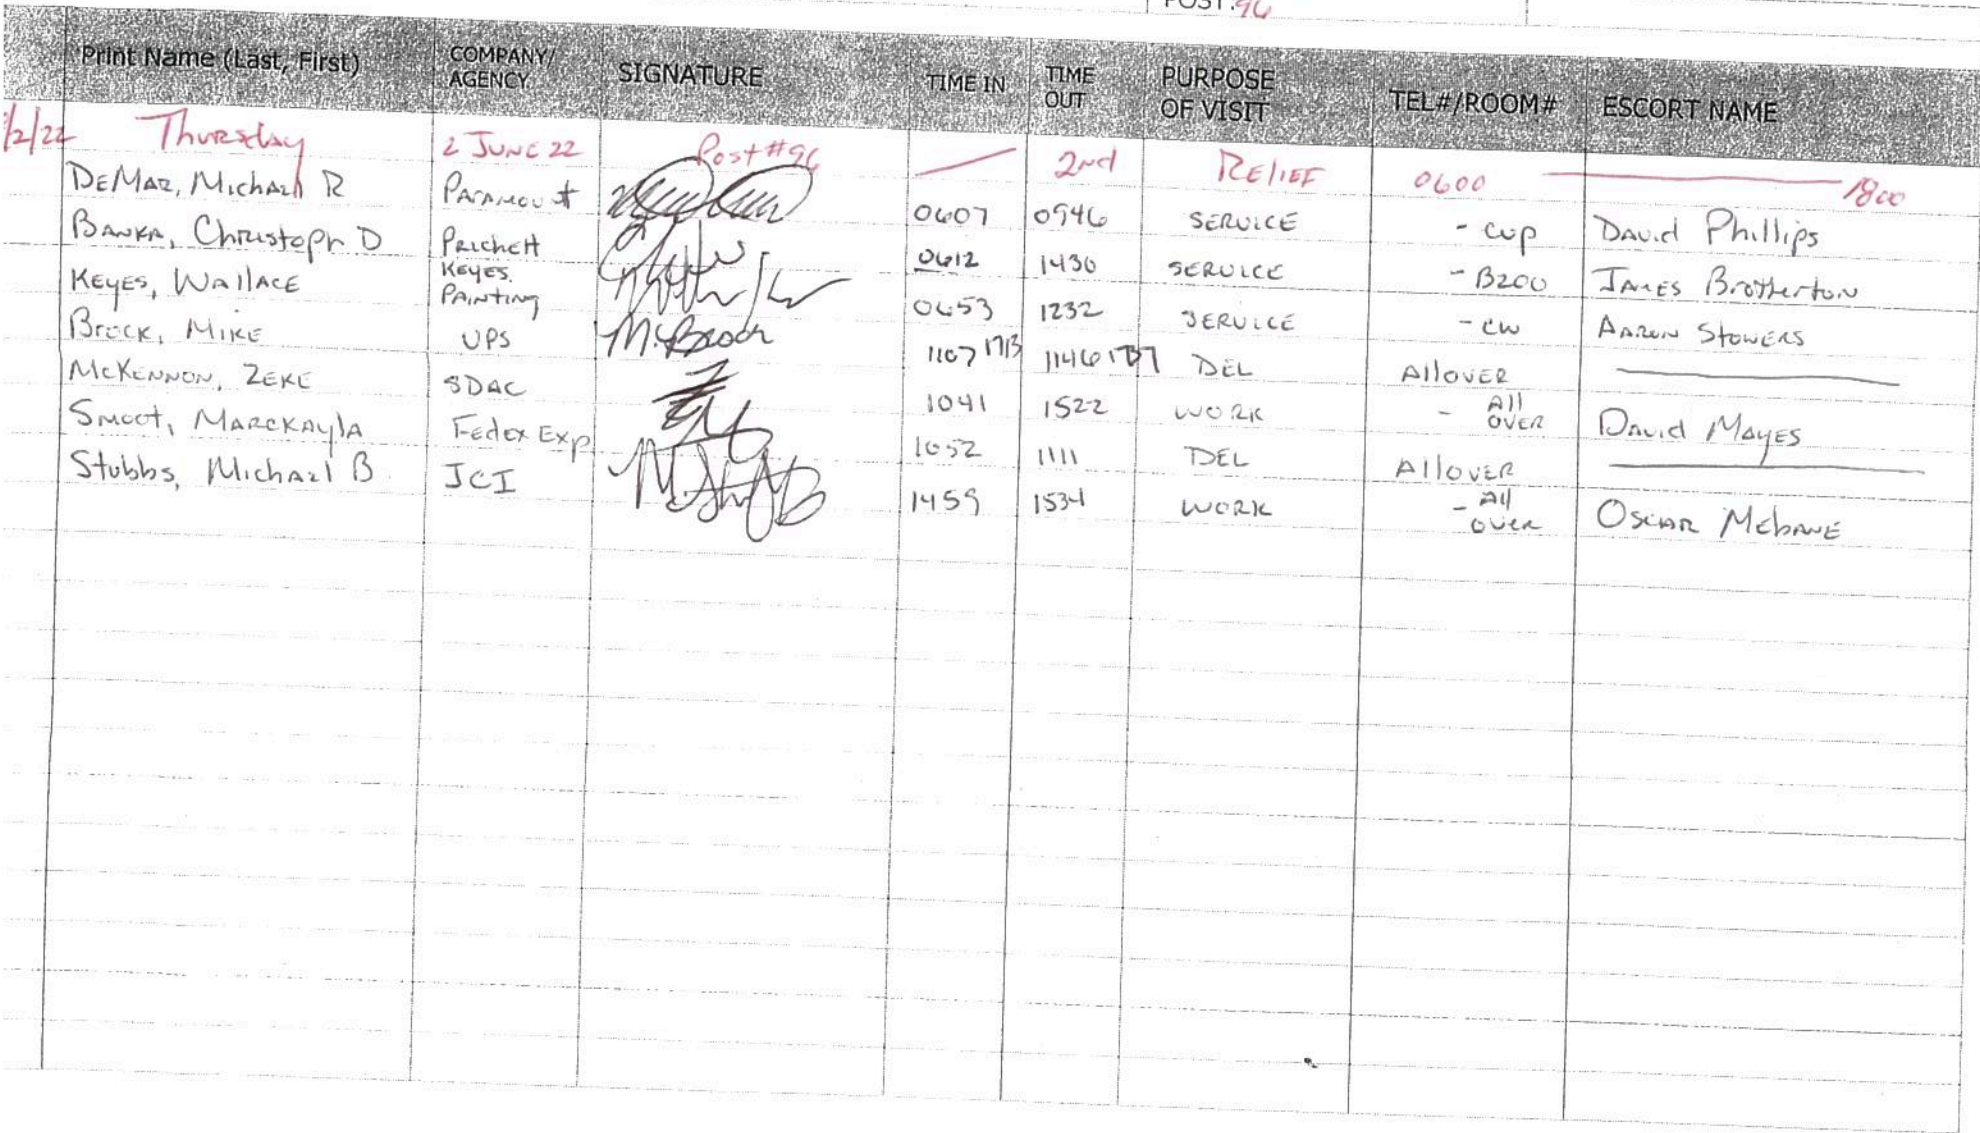 POST: 96
Print Name (Last, First) COMPANY/ AGENCY SIGNATURE TIME IN TIME OUT PURPOSE OF VISIT TEL#/ROOM# ESCORT NAME
/2/22 Thursday 2 JUNE 22 Post #96 — 2nd RELIEF 0600 — 1800
DEMAR, Michael R PARAMOUNT 0607 0946 SERVICE - CUP DAVID Phillips
BANKA, Christoph D Prichett 0612 1430 SERVICE - B200 JAMES Brotherton
KEYES, WALLACE KEYES. PAINTING 0653 1232 SERVICE - CW AARON STOWERS
Brock, MIKE UPS M. Brock 1107 1713 1146 1737 DEL AllOVER —
McKENNON, ZEKE SDAC 1041 1522 WORK - All OVER DAVID MAYES
Smoot, MARCKAYLA Fedex Exp 1052 1111 DEL AllOVER —
Stubbs, Michael B JCI 1459 1534 WORK - All OVER OSCAR MEBANE